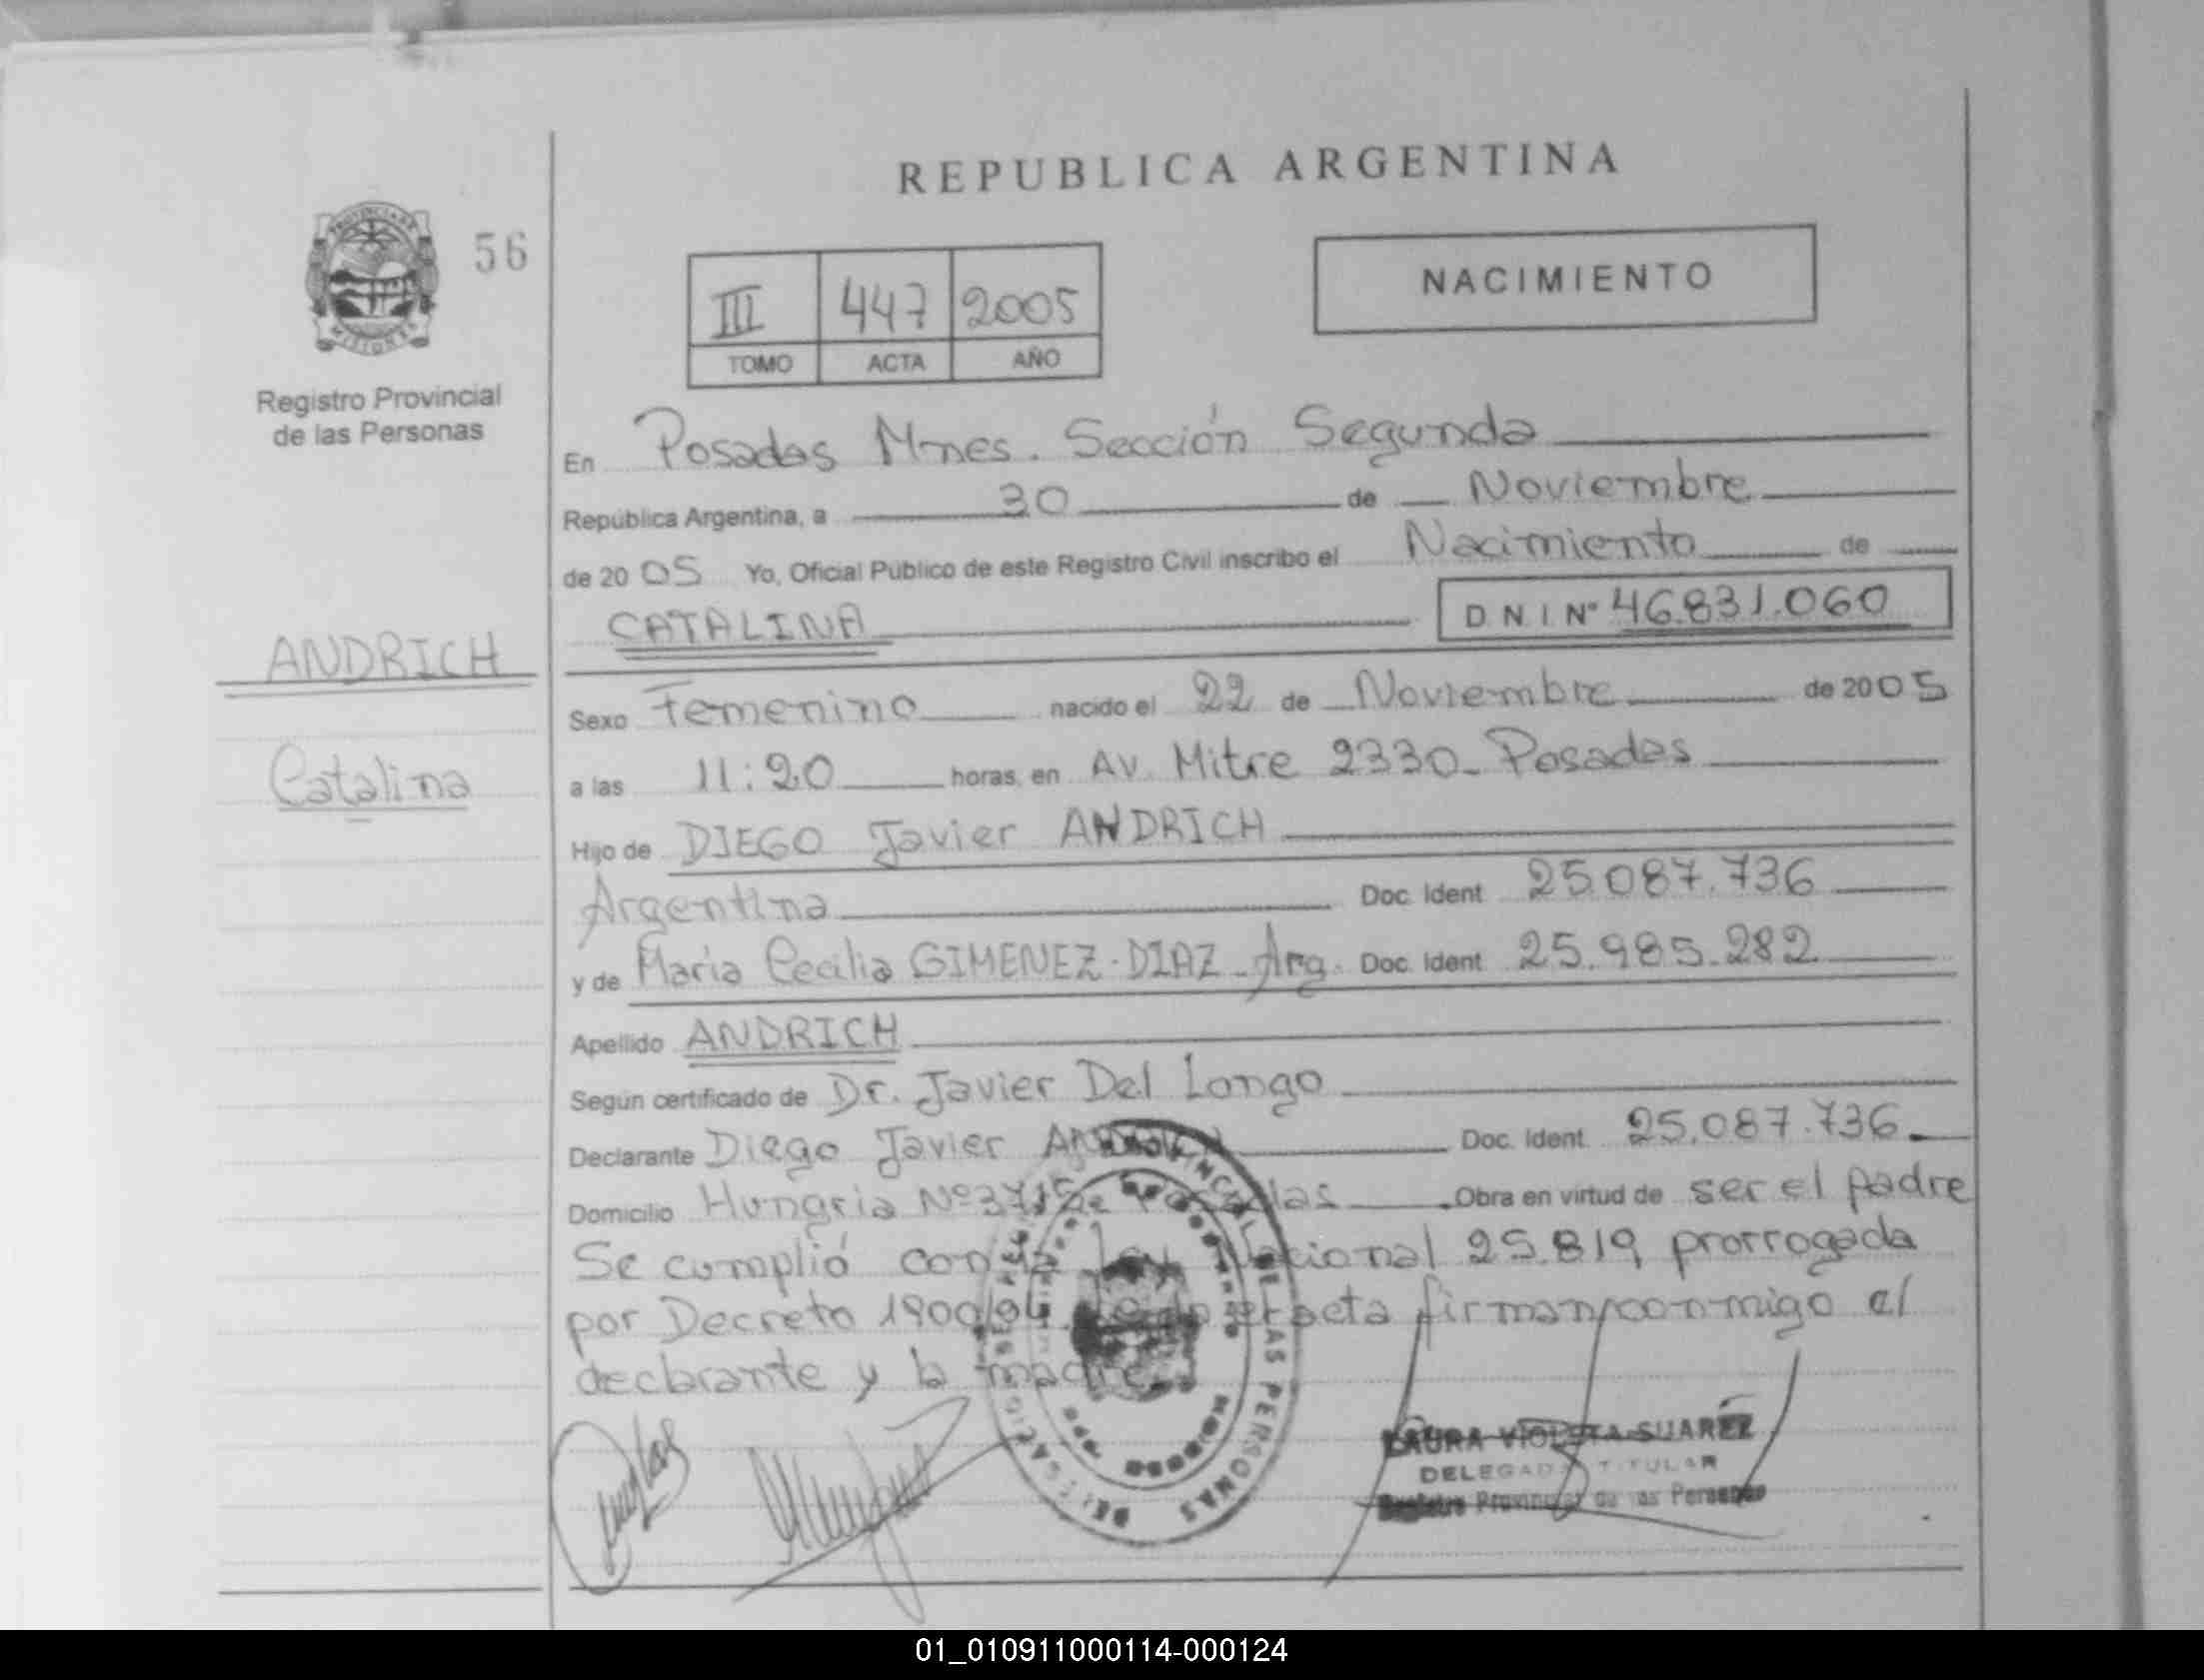 REPUBLICA ARGENTINA
PROVINCIA DE
MISIONES
56
Registro Provincial
de las Personas
III 447 2005
TOMO ACTA AÑO
NACIMIENTO
En Posadas Mnes. Sección Segunda
República Argentina, a 30 de Noviembre
de 2005 Yo, Oficial Público de este Registro Civil inscribo el Nacimiento de
CATALINA DNI Nº 46.831.060
ANDRICH
Catalina
Sexo Femenino nacido el 22 de Noviembre de 2005
a las 11:20 horas, en Av. Mitre 2330 - Posadas
Hijo de DIEGO Javier ANDRICH
Argentina Doc. Ident 25.087.736
y de Maria Cecilia GIMENEZ - DIAZ - Arg. Doc. Ident 25.985.282
Apellido ANDRICH
Según certificado de Dr. Javier Del Longo
Declarante Diego Javier Doc. Ident. 25.087.736
Domicilio Hungria Nº Obra en virtud de ser el padre
Se cumplió con la Ley Nacional 25.819 prorrogada
por Decreto 1900/04 acta firman conmigo el
declarante y la madre
DE LAS PERSONAS
LAURA VIOLETA SUAREZ
DELEGADA TITULAR
Registro Provincial de las Personas
01_010911000114-000124